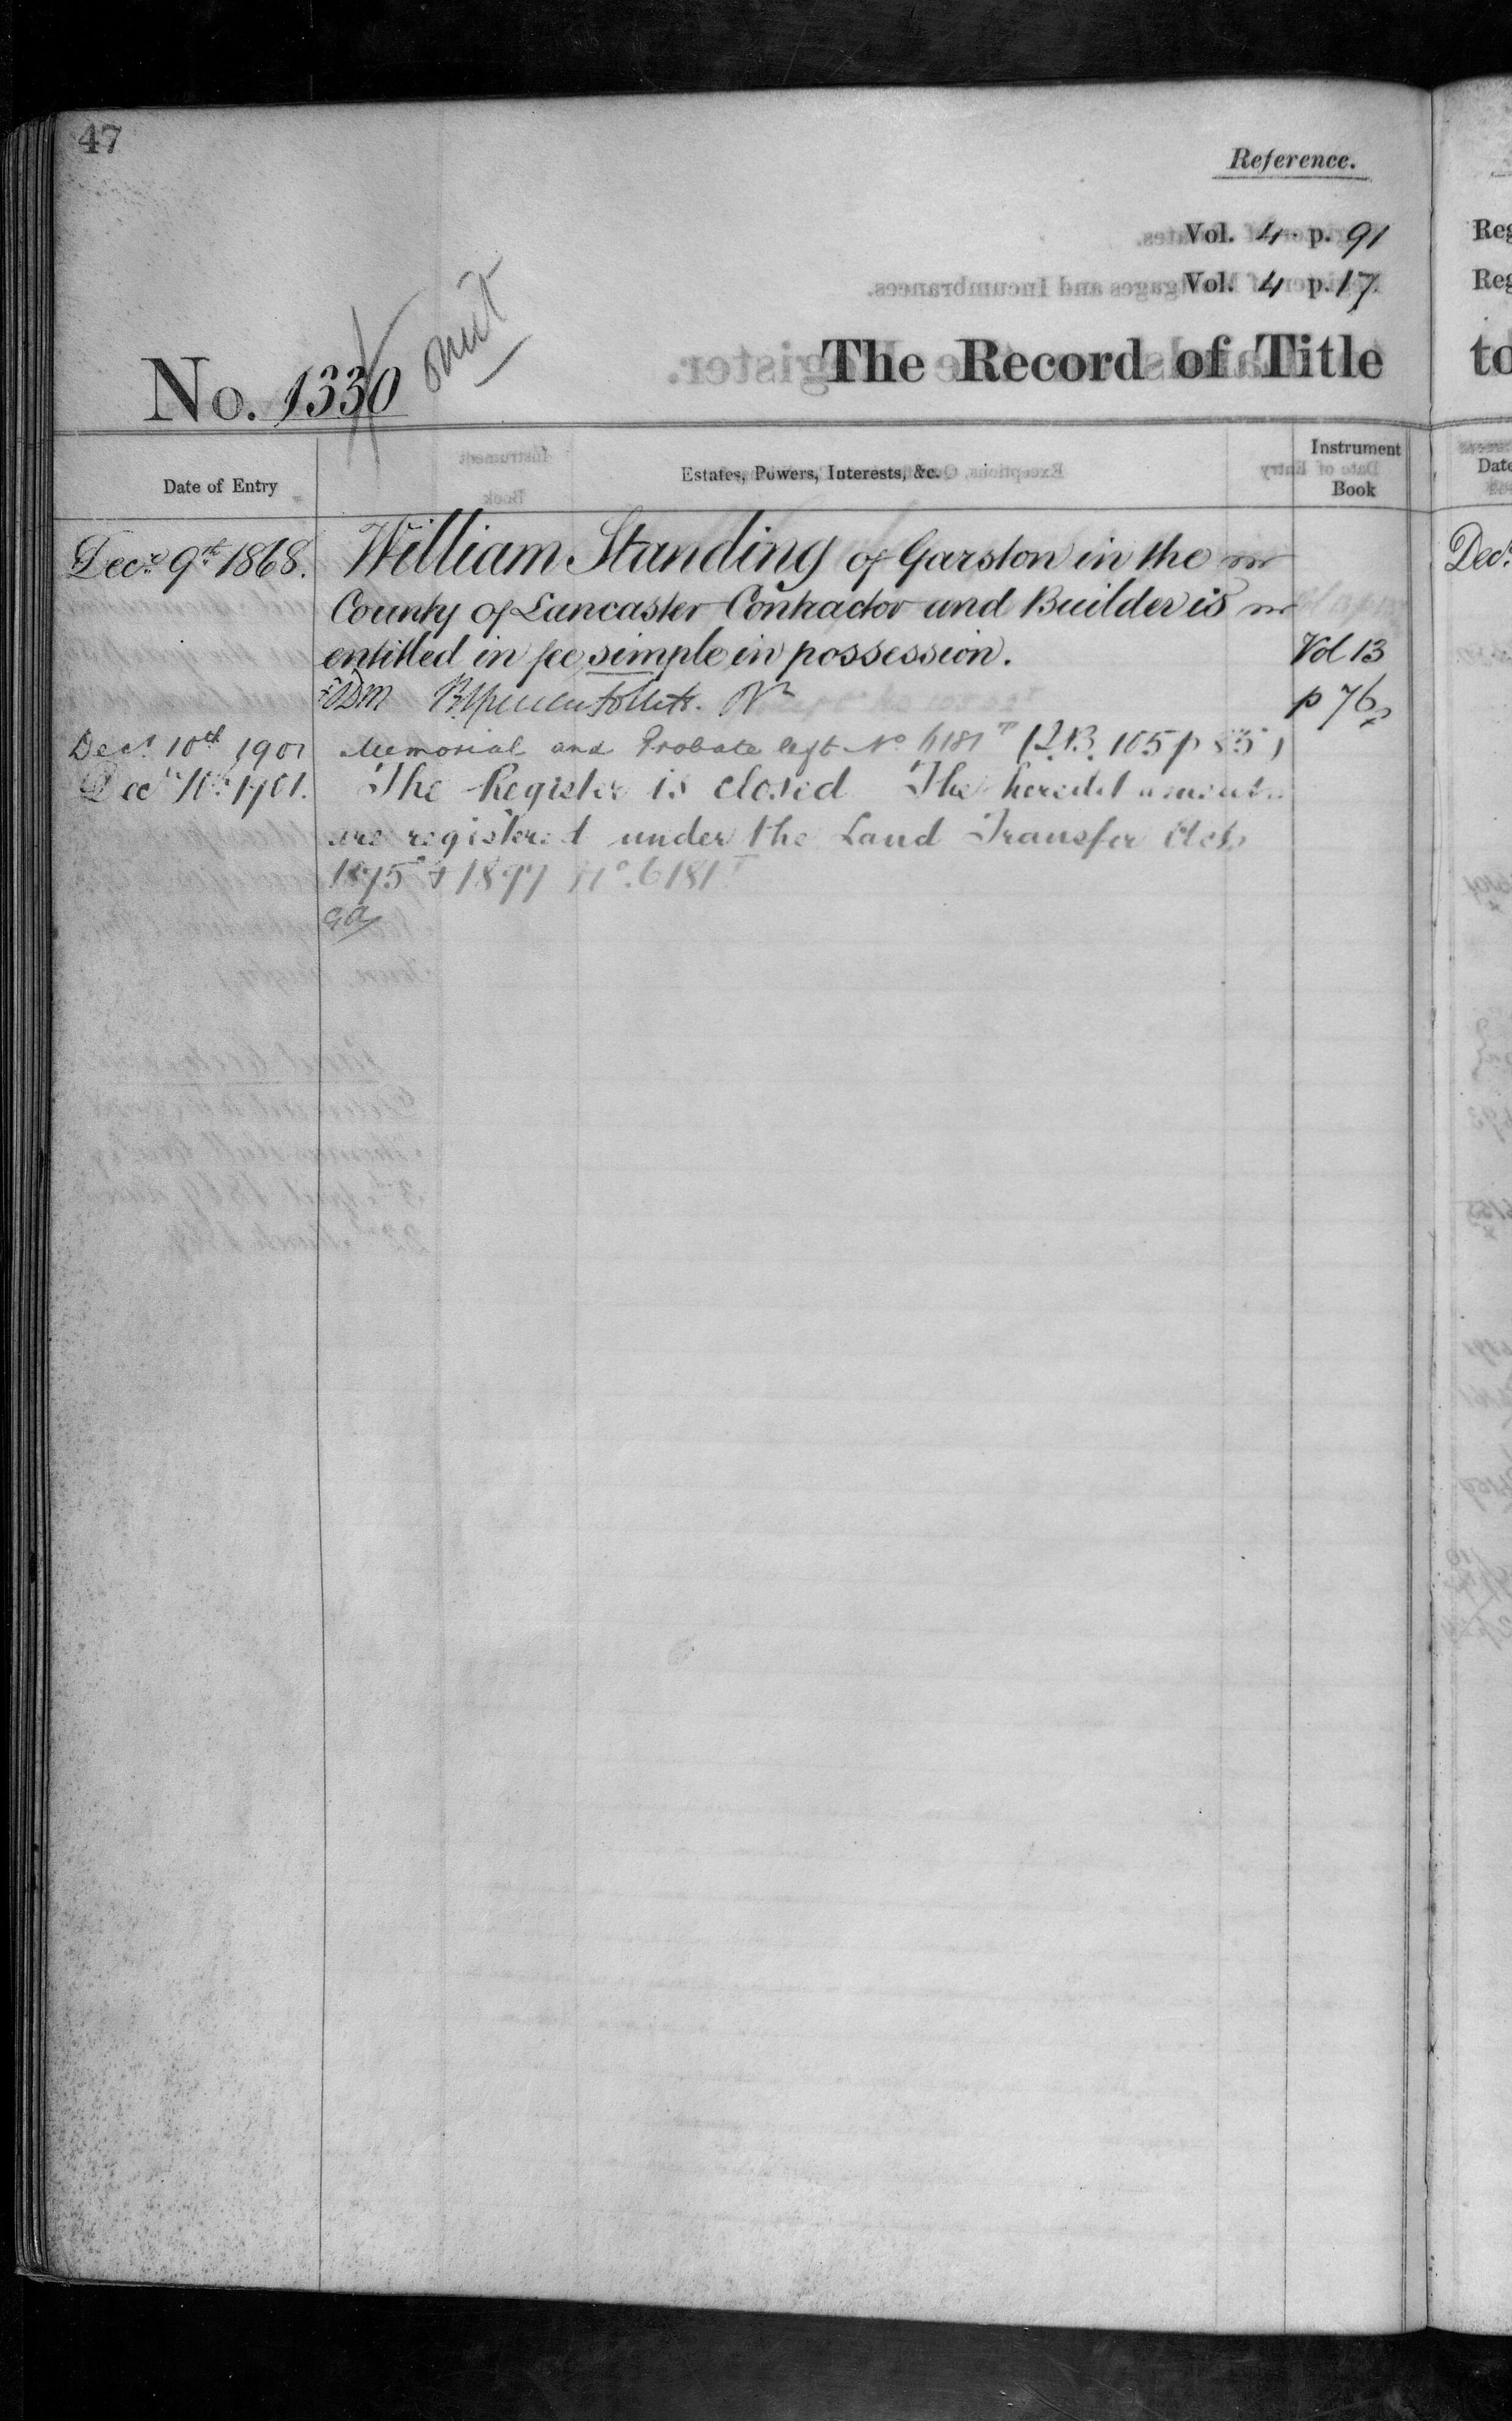 47
Reference.
Vol. 4 p. 91
Vol. 4 p. 17
No. 1330
omit
The Record of Title
Date of Entry
Estates, Powers, Interests, &c.
Instrument Book
Decr. 9th 1868. William Standing of Garston in the
County of Lancaster Contractor and Builder is
entitled in fee simple in possession. Vol 13
p 76
Decr 10th 1901 Memorial and Probate left No 6181 T
Decr 10th 1901. The Register is closed The hereditaments
are registered under the Land Transfer Acts
1875 & 1897 No. 6181 T